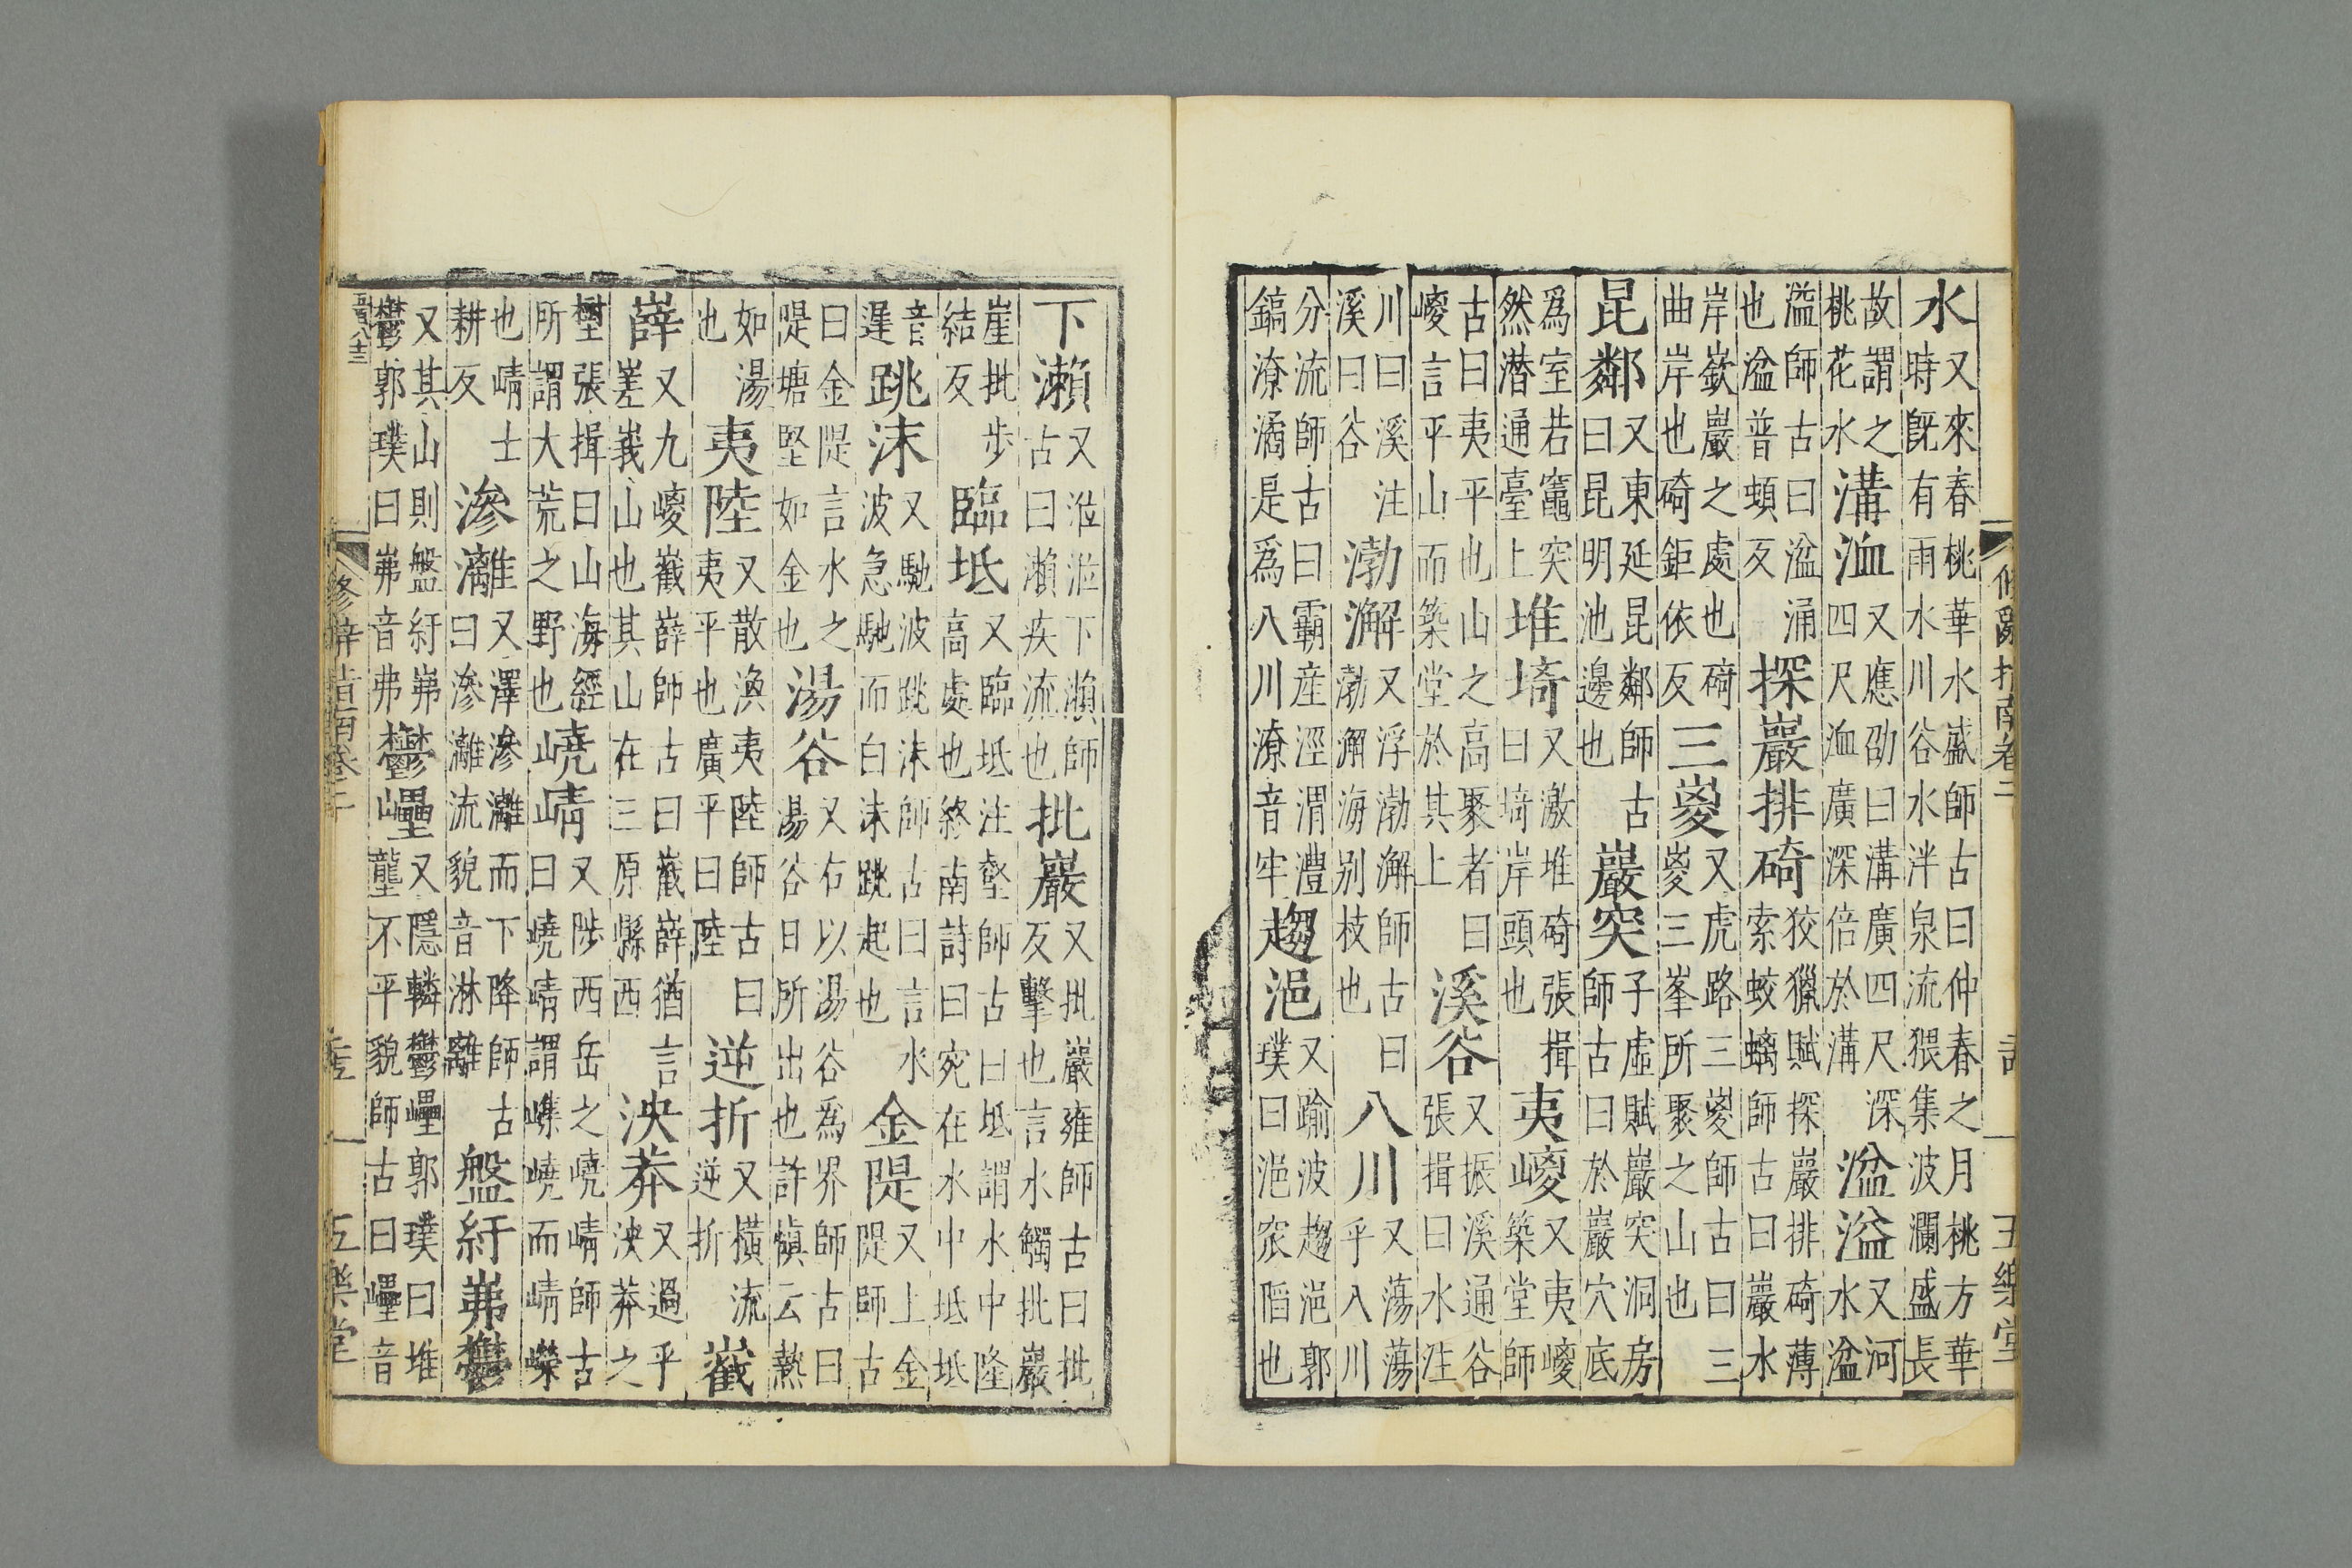 修辭指南卷二 五樂堂
水又來春桃華水盛師古曰仲春之月桃方華時旣有雨水川谷水泮泉流猥集波瀾盛長
故謂之桃花水溝洫又應劭曰溝廣四尺深四尺洫廣深倍於溝湓溢又河水湓
溢師古曰湓涌也湓普頓反探巖排碕狡獵賦探巖排碕薄索蛟螭師古曰巖水
岸嶔巖之處也碕曲岸也碕鉅依反三嵏又虎路三嵏師古曰三嵏三峯所聚之山也
昆鄰又東延昆鄰師古曰昆明池邊也巖突子虛賦巖突洞房師古曰於巖穴底
爲室若竈突然潜通臺上堆埼又激堆碕張揖曰埼岸頭也夷嵕又夷嵕築堂師
古曰夷平也山之高聚者曰嵕言平山而築堂於其上溪谷又振溪通谷張揖曰水注
川曰溪注溪曰谷渤澥又浮渤澥師古曰渤澥海别枝也八川又蕩蕩乎八川
分流師古曰霸産涇渭澧鎬潦潏是爲八川潦音牢趨浥又踰波趨浥郭璞曰浥窊陷也
下瀨又涖涖下瀨師古曰瀨疾流也批巖又批巖雍師古曰批反擊也言水觸批巖
崖批步結反臨坻又臨坻注壑師古曰坻謂水中隆高處也終南詩曰宛在水中坻坻
音遲跳沫又馳波跳沫師古曰言水波急馳而白沫跳起也金隄又上金隄師古
曰金隄言水之隄塘堅如金也湯谷又右以湯谷爲界師古曰湯谷日所出也許愼云熱
如湯也夷陸又散渙夷陸師古曰夷平也廣平曰陸逆折又橫流逆折巀
嶭又九嵕巀嶭師古曰巀嶭猶言嵳峩山也其山在三原縣西泱莽又過乎泱莽之
壄張揖曰山海經所謂大荒之野也嶢崝又陟西岳之嶢崝師古曰嶢崝謂嶕嶢而崝嶸
也崝士耕反滲灕又澤滲灕而下降師古曰滲灕流貌音淋離盤紆岪鬱
又其山則盤紆岪鬱郭璞曰岪音弗鬱𡾋又隱轔鬱𡾋郭璞曰堆壟不平貌師古曰𡾋音
修辭指南卷二 五樂堂